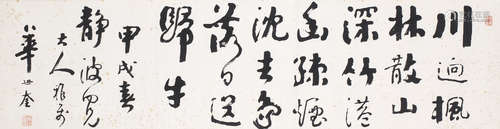 川迥楓
林散山
深竹港
幽疎煙
沈去鳥
落日送
歸牛
甲戌春
靜波兄
大人雅
華世奎